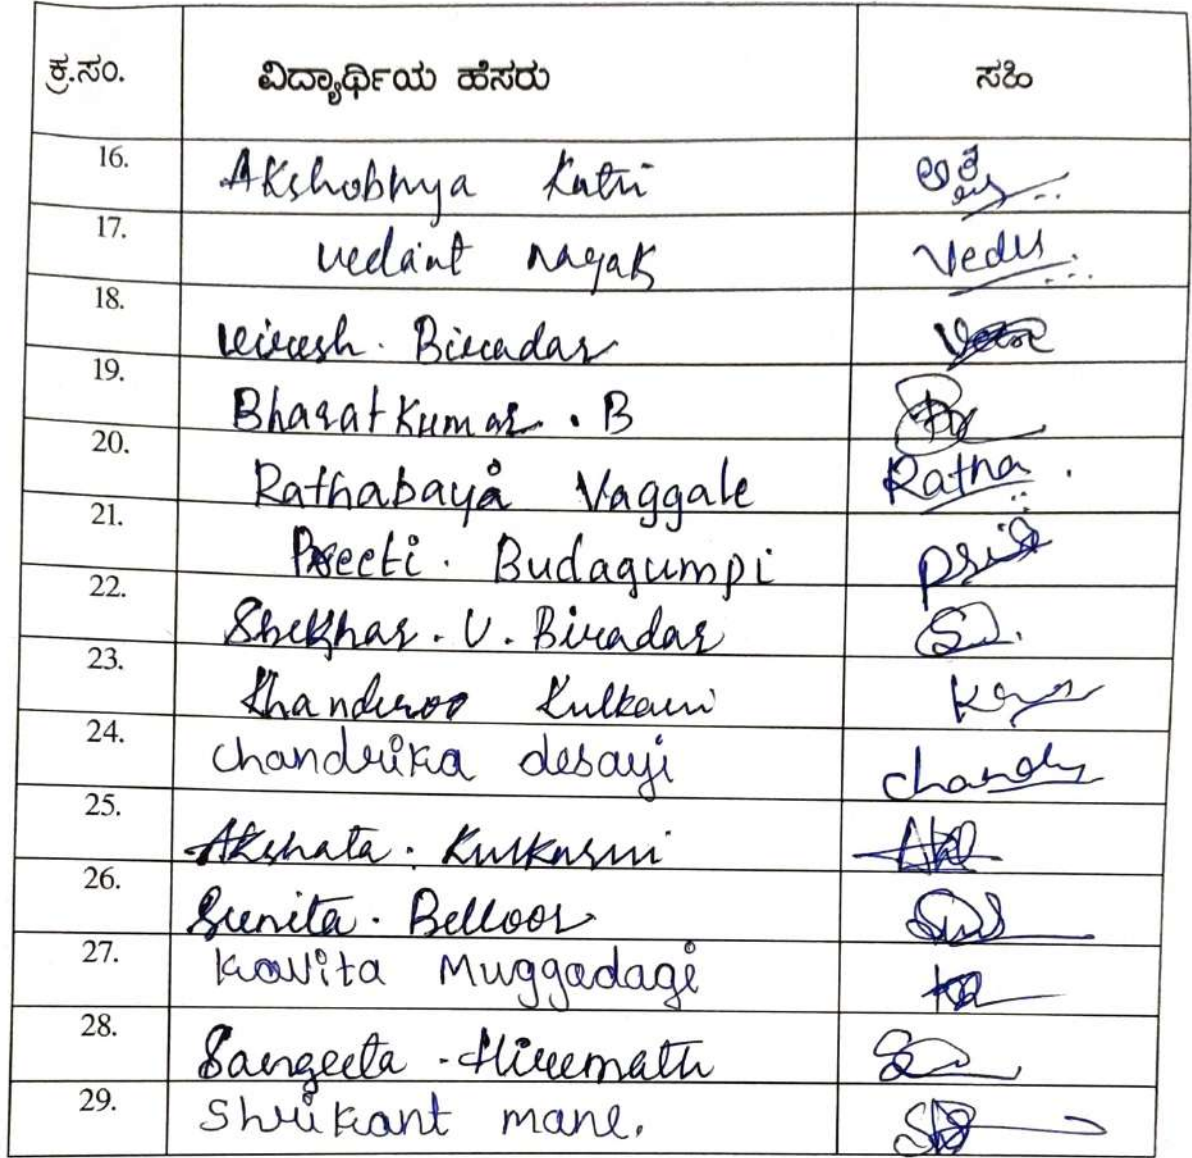 ಕ್ರ.ಸಂ. ವಿದ್ಯಾರ್ಥಿಯ ಹೆಸರು ಸಹಿ
16. Akshobhya Katri
17. Vedant nayak Vedu
18. Viresh. Biradar
19. Bharatkumar. B
20. Rathabayi Vaggale Ratha.
21. Preeti. Budagumpi
22. Shekhar. V. Biradar
23. Khanderoo Kulkarni
24. Chandrika desayi
25. Akshata. Kulkarni
26. Sunita. Belloor
27. Kavita Muggadagi
28. Sangeeta - Hiremath
29. Shrikant mane.